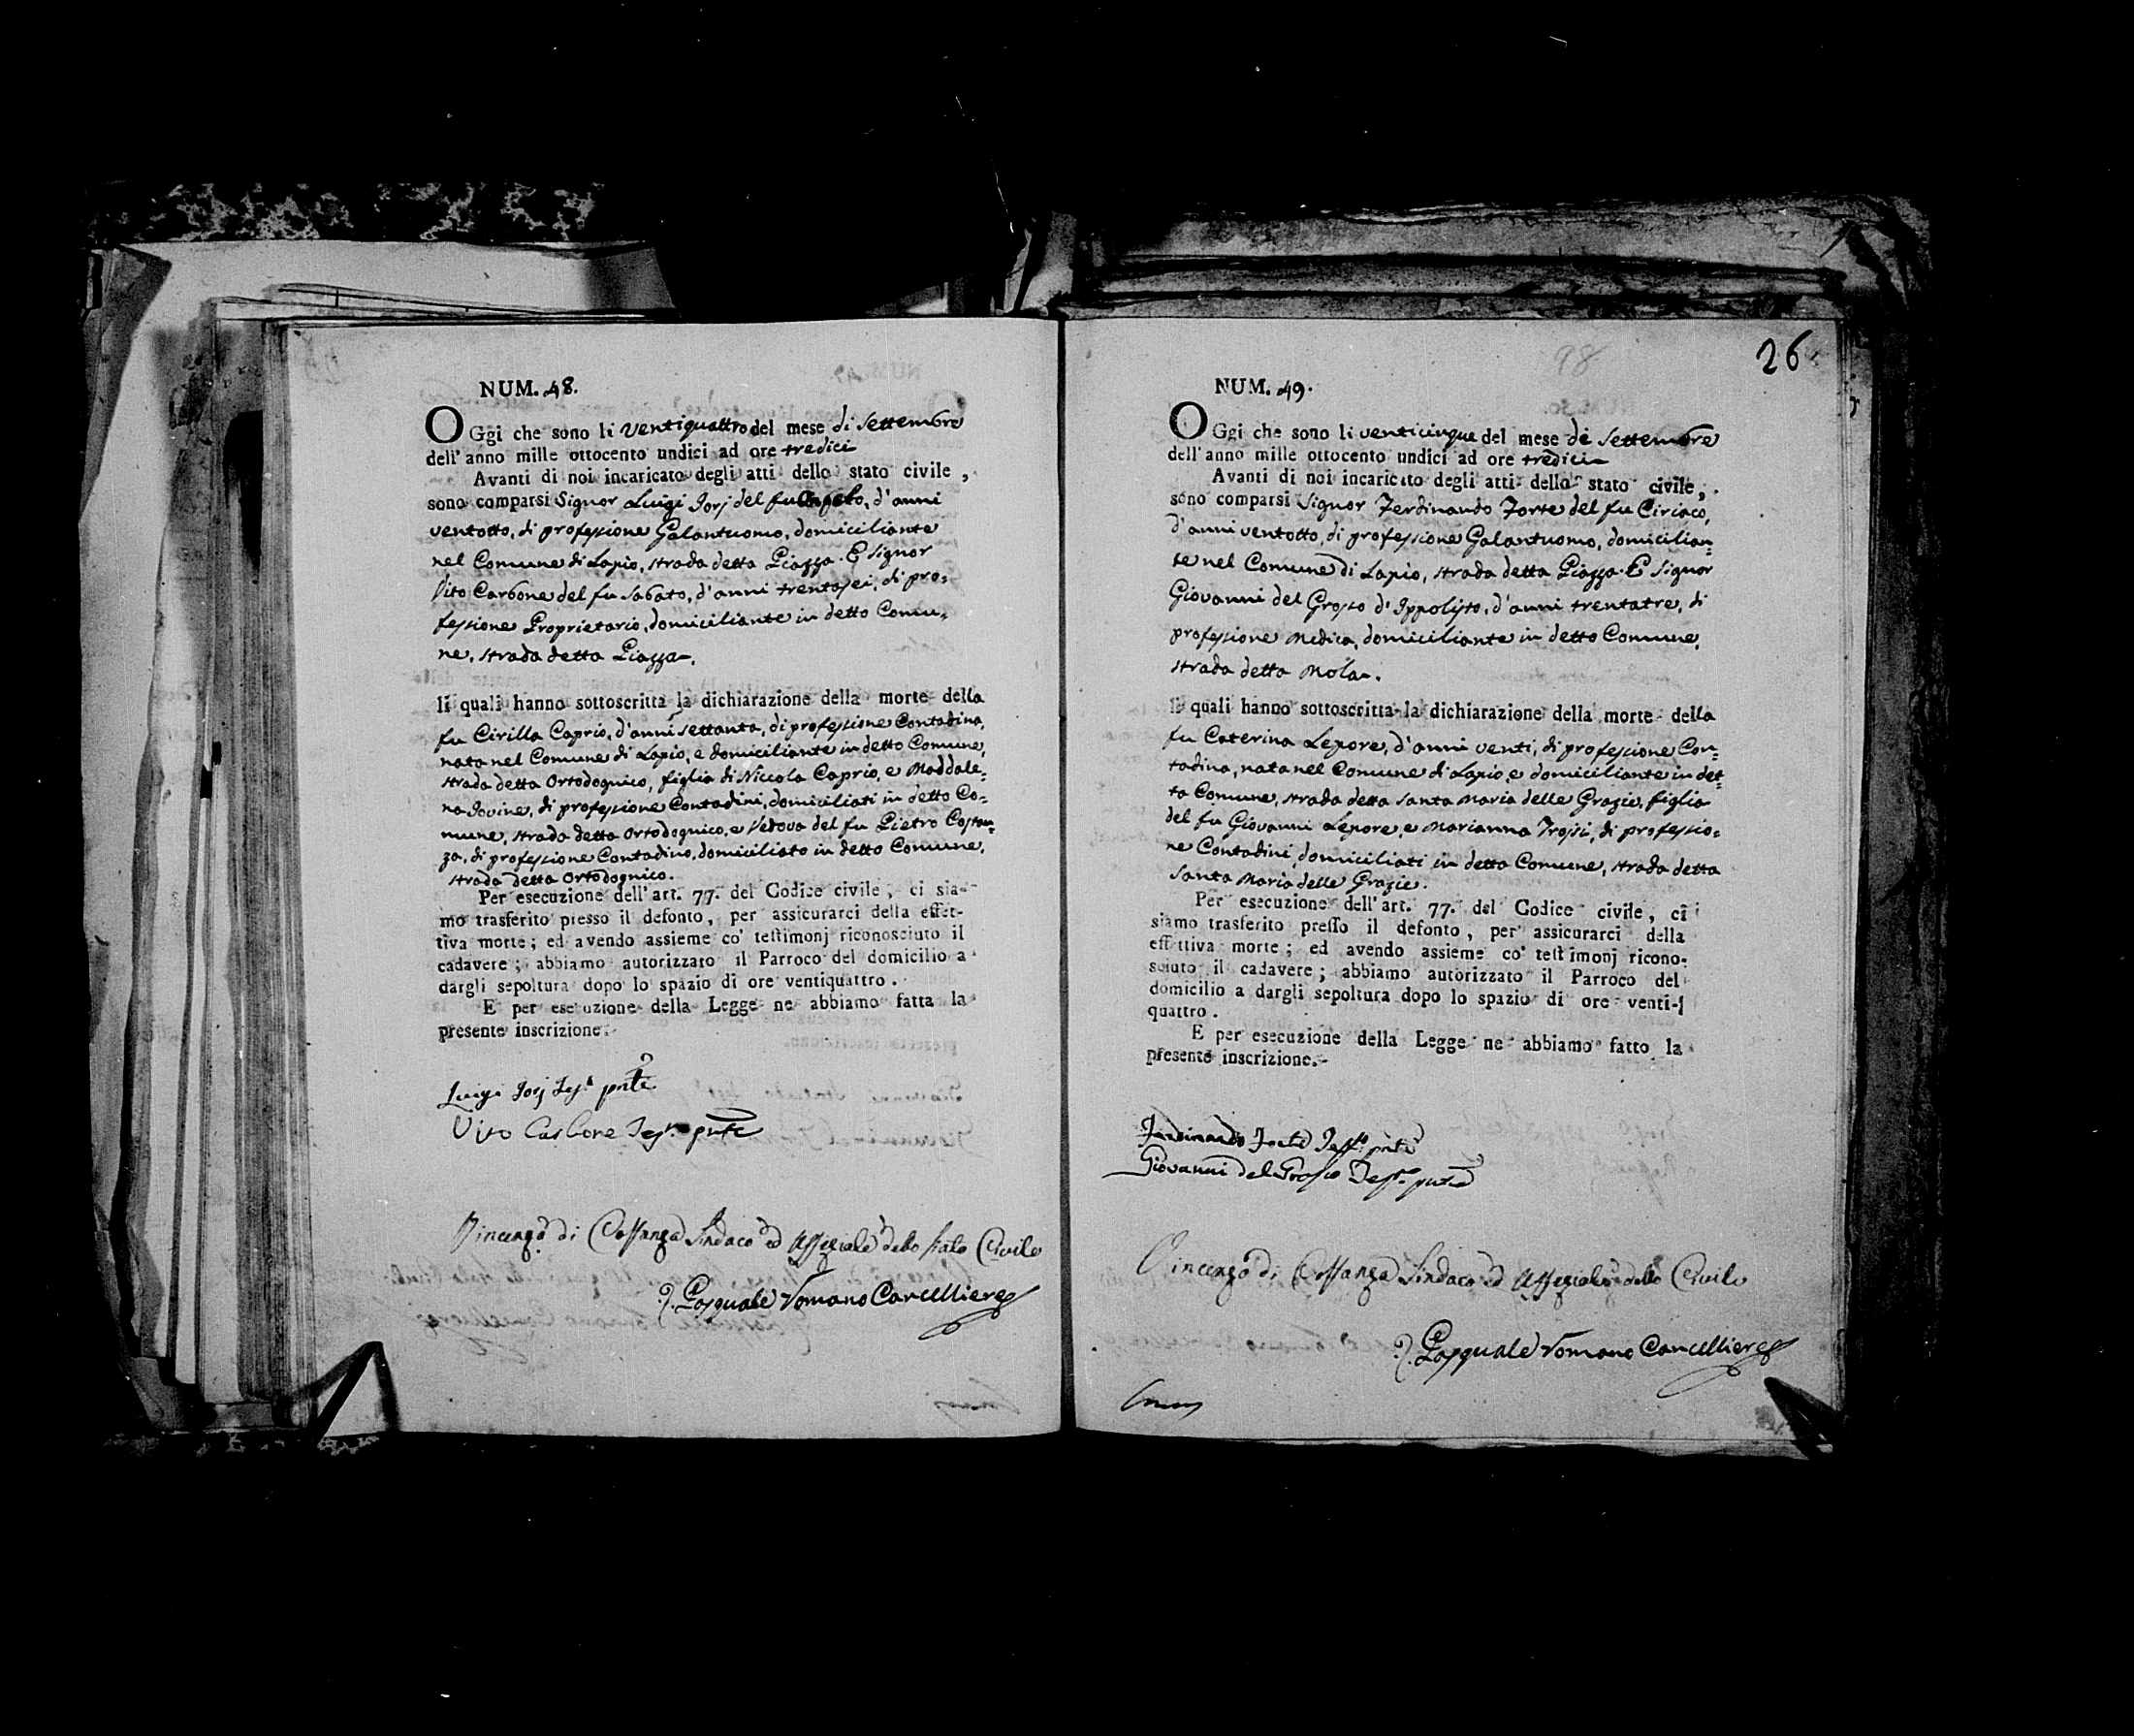 NUM. 48.
OGgi che sono li ventiquattro del mese di Settembre
dell' anno mille ottocento undici ad ore tredici
Avanti di noi incaricato degli atti dello stato civile ,
sono comparsi Signor Luigi Jorj del fu Angelo, d'anni
ventotto, di professione Galantuomo, domiciliante
nel Comune di Lapio, strada detta Piazza. E Signor
Vito Carbone del fu Sabato, d'anni trentasei, di pro=
fessione Proprietario, domiciliante in detto Comu=
ne, strada detta Piazza.
li quali hanno sottoscritta la dichiarazione della morte della
fu Cirilla Caprio, d'anni settanta, di professione Contadina,
nata nel Comune di Lapio, e domiciliante in detto Comune,
strada detta Ortodognico, figlia di Niccola Caprio, e Maddale=
na Iovine, di professione Contadini, domiciliati in detto Co=
mune, strada detta Ortodognico, e Vedova del fu Pietro Costan=
za, di professione Contadino, domiciliato in detto Comune,
strada detta Ortodognico.
Per esecuzione dell' art. 77. del Codice civile , ci sia-
mo trasferito presso il defonto , per assicurarci della effet-
tiva morte ; ed avendo assieme co' testimonj riconosciuto il
cadavere ; abbiamo autorizzato il Parroco del domicilio a
dargli sepoltura dopo lo spazio di ore ventiquattro .
E per esecuzione della Legge ne abbiamo fatta la
presente inscrizione.
Luigi Jorj Test. pnte
Vito Carbone Test. pnte
Vincenzo di Costanza Sindaco ed Uffiziale dello Stato Civile
Pasquale Romano Cancelliere
26
98
NUM. 49.
OGgi che sono li venticinque del mese di Settembre
dell' anno mille ottocento undici ad ore tredici
Avanti di noi incaricato degli atti dello stato civile ,
sono comparsi Signor Ferdinando Forte del fu Ciriaco,
d'anni ventotto, di professione Galantuomo, domicilian=
te nel Comune di Lapio, strada detta Piazza. E Signor
Giovanni del Grosso d'Ippolisto, d'anni trentatre, di
professione Medica, domiciliante in detto Comune,
strada detta Mola.
li quali hanno sottoscritta la dichiarazione della morte della
fu Caterina Lepore, d'anni venti, di professione Con=
tadina, nata nel Comune di Lapio, e domiciliante in det=
to Comune, strada detta Santa Maria delle Grazie, figlia
del fu Giovanni Lepore, e Marianna Troisi, di professio=
ne Contadini, domiciliati in detto Comune, strada detta
Santa Maria delle Grazie.
Per esecuzione dell' art. 77. del Codice civile , ci
siamo trasferito presso il defonto , per assicurarci della
effettiva morte ; ed avendo assieme co' testimonj ricono-
sciuto il cadavere ; abbiamo autorizzato il Parroco del
domicilio a dargli sepoltura dopo lo spazio di ore venti-
quattro .
E per esecuzione della Legge ne abbiamo fatto la
presente inscrizione.
Ferdinando Forte Test. pnte
Giovanni del Grosso Test. pnte
Vincenzo di Costanza Sindaco ed Uffiziale dello Civile
Pasquale Romano Cancelliere